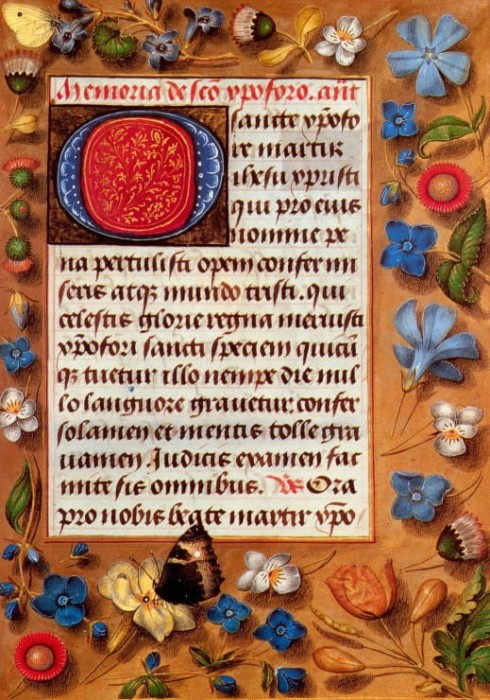 Memoria de sc̄o xp̄oforo. an̄t
O sancte xp̄ofo
re martir
ihesu xp̄isti
qui pro eius
nomine pe
na pertulisti opem confer mi
seris atqʒ mundo tristi. qui
celestis glorie regna meruisti
xp̄ofori sancti speciem quicū
qʒ tuetur illo nempe die nul
lo languore grauetur: confer
solamen et mentis tolle gra
uamen Judicis examen fac
mite sis omnibus. Vs̄ Ora
pro nobis beate martir xp̄o